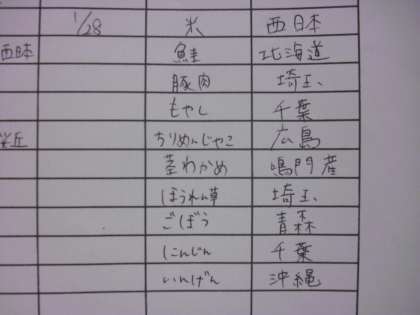 1/28 米 西日本
西日本 鮭 北海道
豚肉 埼玉、
もやし 千葉
ちりめんじゃこ 広島
茎わかめ 鳴門産
ほうれん草 埼玉、
ごぼう 青森
にんじん 千葉
いんげん 沖縄